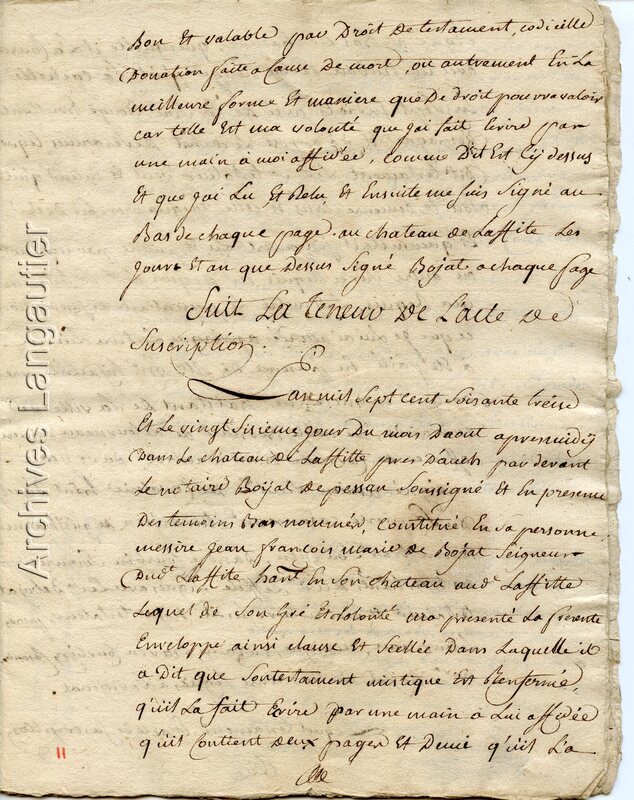 Bon Et valable par Droit de testament, codicille
Donation faite a Cause De mort, ou autrement En La
meilleure forme Et maniere que De droit pourra valoir
car telle Est ma volonté que jai fait Ecrire par
une main à moi affidée, comme Dit Est Cÿ dessus
Et que jai Lu Et Relu, Et Ensuite me suis Signé au
Bas de chaque page. au chateau de Laffite Les
jour Et an que Dessus Signé Bojat a chaque page
Suit La Teneur De L'acte De
Suscription.
Lan mil Sept cent Soisante treise
Et Le vingt Sisieme jour Du mois Daout apresmidÿ
Dans Le chateau de Laffitte pres D'auch par devant
Le notaire Roÿal de pessan Soussigné Et En presence
Des temoins Bas nommés, constitué En Sa personne
messire jean francois marie de Bojat Seigneur
Dud.t Laffite hant. En Son chateau aud. Laffitte
Lequel de Son Gré Et volonté ma presenté La presente
Enveloppe ainsi clause Et Scellée Dans Laquelle il
a Dit que Son testament mistique Est Renfermé,
qu'il La fait Ecrire par une main à Lui affidée
qu'il Contient deux pages Et Demie qu'il L'a
11
Archives Langautier